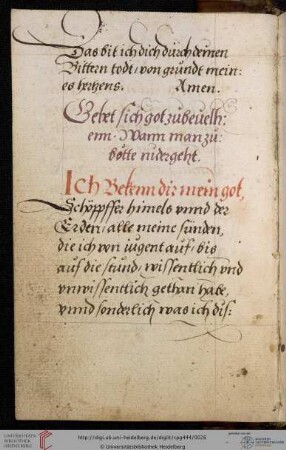 Das bit ich dich durch deinen
Bittern todt, von grundt mein:
es hertzens. Amen.
Gebet sich got zubeuelh:
enn. Wann man zu:
botte nidergeht.
Ich Bekenn dir mein got,
Schöpffer himels vnnd der
Erden, alle meine sünden,
die ich von iugent auf, bis
auf die stund, wissentlich vnd
vnwissentlich gethan habe,
vnnd sonderlich was ich dis:
http://digi.ub.uni-heidelberg.de/diglit/cpg444/0026
© Universitätsbibliothek Heidelberg
UNIVERSITÄTS-
BIBLIOTHEK
HEIDELBERG